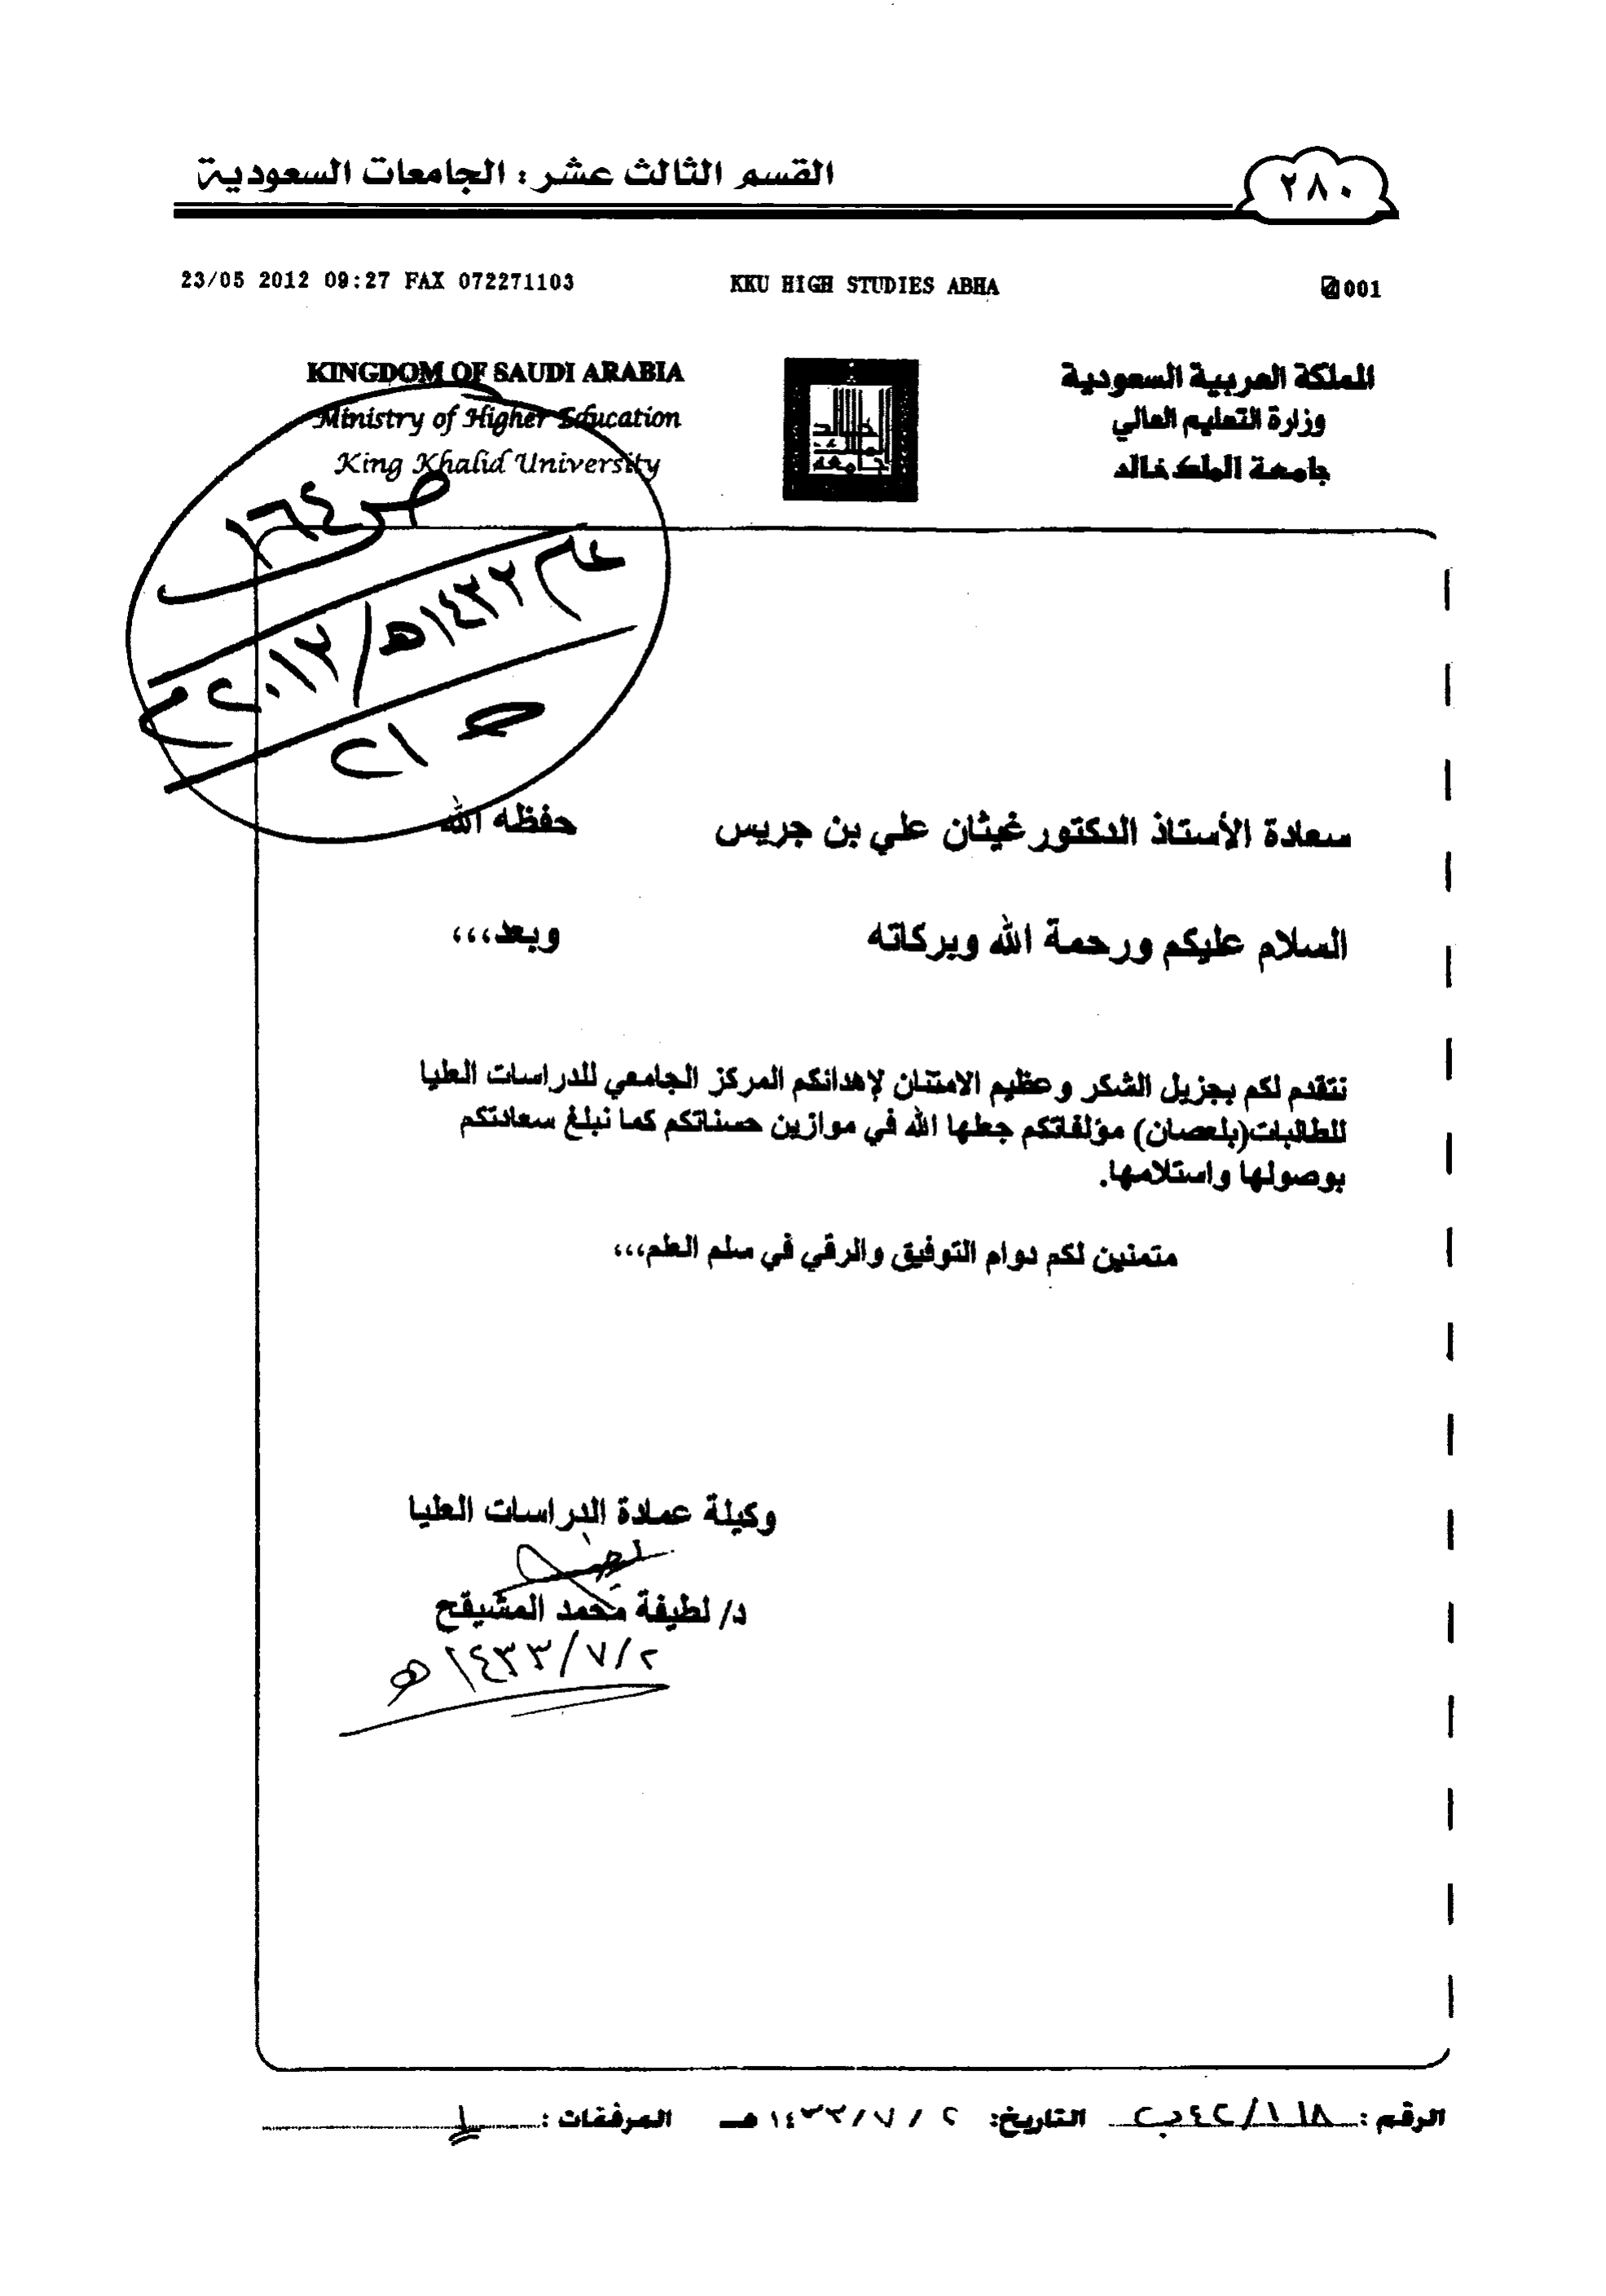 القسم الثالث عشر: الجامعات السعودية
٢٨٠
23/05 2012 09:27 FAX 072271103 KKU HIGH STUDIES ABHA 001
المملكة العربية السعودية
وزارة التعليم العالي
جامعة الملك خالد
KINGDOM OF SAUDI ARABIA
Ministry of Higher Education
King Khalid University
ص ١٦٤
عام ١٤٣٢هـ/٢٠١٢م
حـ ٢١
سعادة الأستاذ الدكتور غيثان علي بن جريس حفظه الله
السلام عليكم ورحمة الله وبركاته وبعد،،،
نتقدم لكم بجزيل الشكر وعظيم الامتنان لإهدائكم المركز الجامعي للدراسات العليا
للطالبات(بلعصان) مؤلفاتكم جعلها الله في موازين حسناتكم كما نبلغ سعادتكم
بوصولها واستلامها.
متمنين لكم دوام التوفيق والرقي في سلم العلم،،،
وكيلة عمادة الدراسات العليا
د/ لطيفة محمد المشيقح
٢/٧/١٤٣٣هـ
الرقم: التاريخ: ٢ / ٧ / ١٤٣٣هـ المرفقات: ١